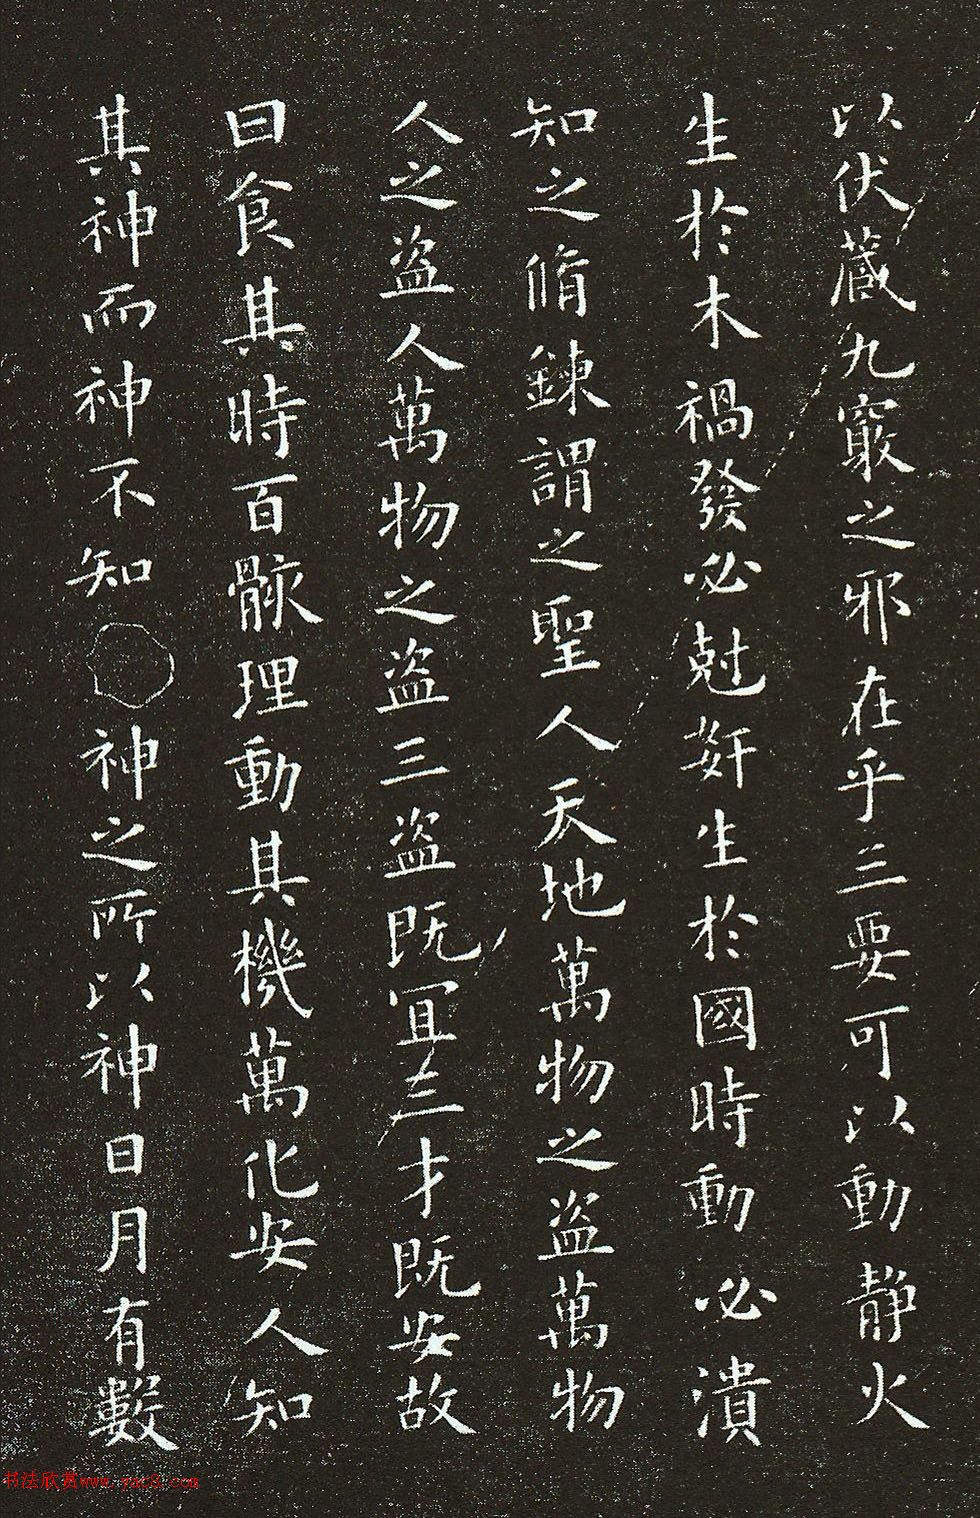 以伏藏九竅之邪在乎三要可以動静火
生於木禍發必尅姧生於國時動必潰
知之脩鍊謂之聖人天地萬物之盜萬物
人之盜人萬物之盜三盜既冝三才既安故
曰食其時百骸理動其機萬化安人知
其神而神不知〇神之所以神日月有數
书法欣赏www.yac8.com